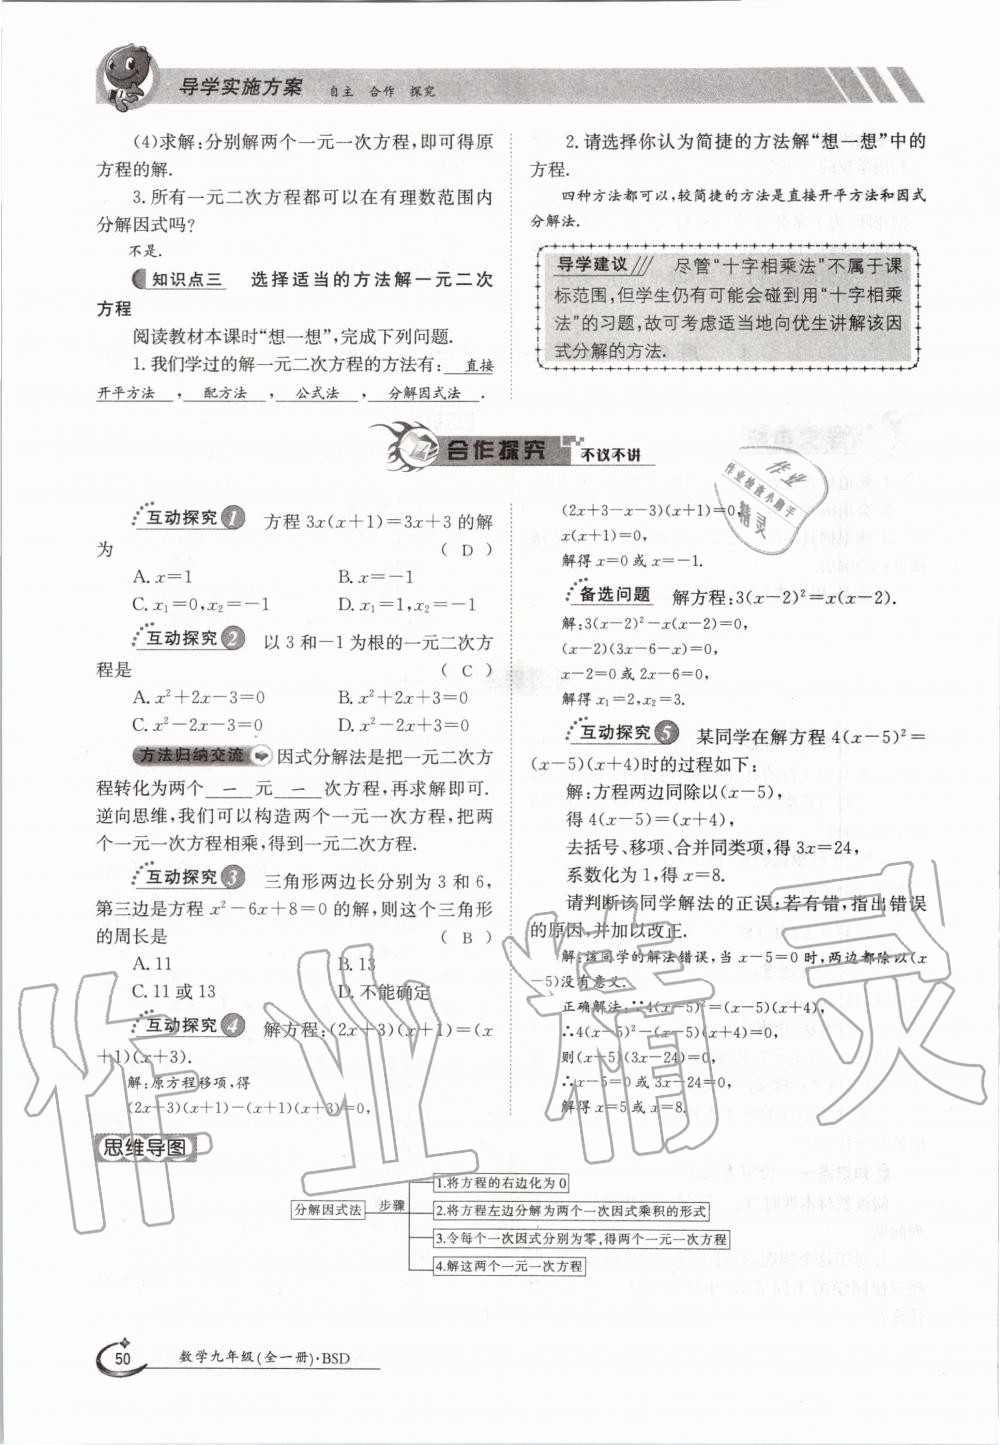 导学实施方案 自主 合作 探究
(4)求解:分别解两个一元一次方程,即可得原
方程的解.
3.所有一元二次方程都可以在有理数范围内
分解因式吗?
不是.
知识点三 选择适当的方法解一元二次
方程
阅读教材本课时“想一想”,完成下列问题.
1.我们学过的解一元二次方程的方法有: 直接
开平方法 , 配方法 , 公式法 , 分解因式法 .
2.请选择你认为简捷的方法解“想一想”中的
方程.
四种方法都可以,较简捷的方法是直接开平方法和因式
分解法.
导学建议 尽管“十字相乘法”不属于课
标范围,但学生仍有可能会碰到用“十字相乘
法”的习题,故可考虑适当地向优生讲解该因
式分解的方法.
合作探究 不议不讲
互动探究1 方程3x(x+1)=3x+3的解
为 ( D )
A.x=1 B.x=-1
C.x₁=0,x₂=-1 D.x₁=1,x₂=-1
互动探究2 以3和-1为根的一元二次方
程是 ( C )
A.x²+2x-3=0 B.x²+2x+3=0
C.x²-2x-3=0 D.x²-2x+3=0
方法归纳交流 因式分解法是把一元二次方
程转化为两个 一 元 一 次方程,再求解即可.
逆向思维,我们可以构造两个一元一次方程,把两
个一元一次方程相乘,得到一元二次方程.
互动探究3 三角形两边长分别为3和6,
第三边是方程x²-6x+8=0的解,则这个三角形
的周长是 ( B )
A.11 B.13
C.11或13 D.不能确定
互动探究4 解方程:(2x+3)(x+1)=(x
+1)(x+3).
解:原方程移项,得
(2x+3)(x+1)-(x+1)(x+3)=0,
(2x+3-x-3)(x+1)=0,
x(x+1)=0,
解得x=0或x=-1.
备选问题 解方程:3(x-2)²=x(x-2).
解:3(x-2)²-x(x-2)=0,
(x-2)(3x-6-x)=0,
x-2=0或2x-6=0,
解得x₁=2,x₂=3.
互动探究5 某同学在解方程4(x-5)²=
(x-5)(x+4)时的过程如下:
解:方程两边同除以(x-5),
得4(x-5)=(x+4),
去括号、移项、合并同类项,得3x=24,
系数化为1,得x=8.
请判断该同学解法的正误;若有错,指出错误
的原因,并加以改正.
解:该同学的解法错误,当x-5=0时,两边都除以(x
-5)没有意义.
正确解法:∵4(x-5)²=(x-5)(x+4),
∴4(x-5)²-(x-5)(x+4)=0,
则(x-5)(3x-24)=0,
∴x-5=0或3x-24=0,
解得x=5或x=8.
作业
作业检查小助手
精灵
作业精灵
思维导图
分解因式法 步骤
1.将方程的右边化为0
2.将方程左边分解为两个一次因式乘积的形式
3.令每个一次因式分别为零,得两个一元一次方程
4.解这两个一元一次方程
50 数学九年级(全一册)·BSD